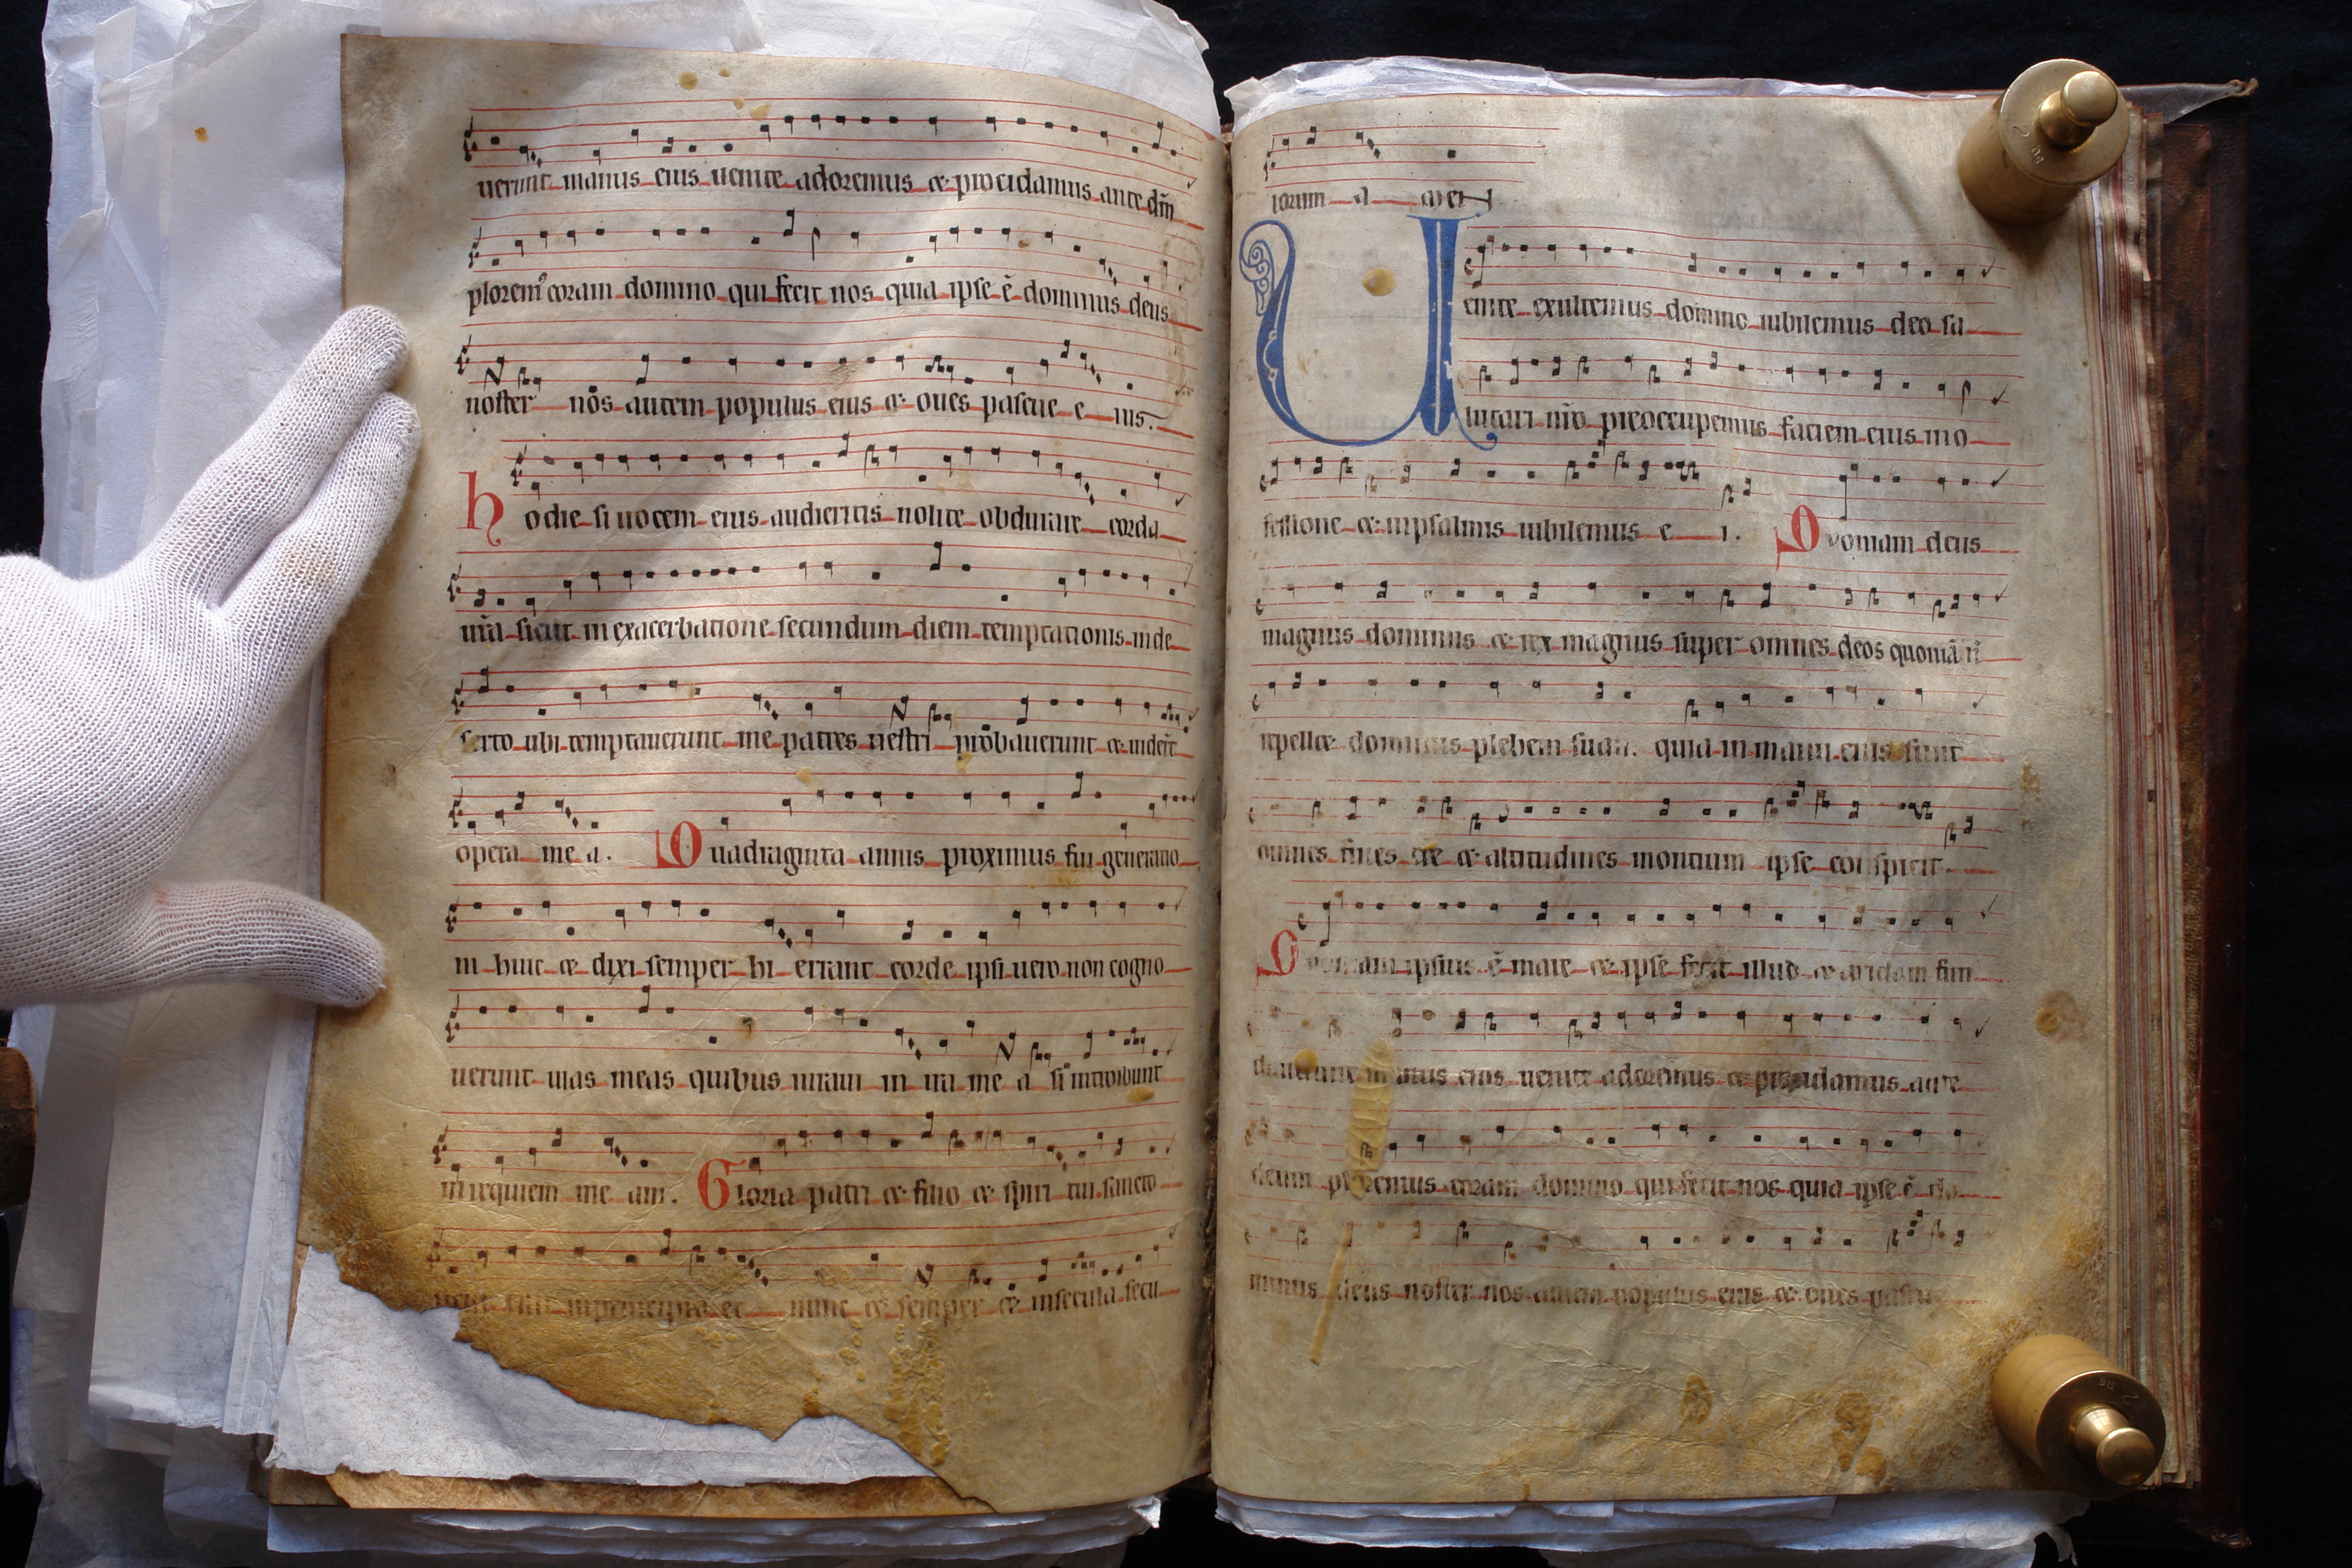 uerunt manus eius uenite adoremus et procidamus ante dm̄
plorem' coram domino qui fecit nos quia ipse ē dominus deus
noster nōs autem populus eius et oues pascue e ius.
hodie si uocem eius audieritis nolite obdurare corda
ur̄a sicut in exacerbatione secundum diem temptationis in de
serto ubi temptauerunt me patres uestri probauerunt et uider̄t
opera me a. Quadraginta annis proximus fui generatio
ni huic et dixi semper hi errant corde ipsi uero non cogno
uerunt uias meas quibus iuraui in ira me a si introibunt
in requiem me am. Gloria patri et filio et spiri tui sancto
in principio et nunc et semper et in secula secu
lorum a men
Uenite exultemus domino iubilemus deo sa
lutari nr̄o preoccupemus faciem eius in o
fessione et in psalmis iubilemus e i. Quoniam deus
magnus dominus et rex magnus super omnes deos quoniā n̄
repellet dominus plebem suam. quia in manu eius sunt
omnes fines tr̄e et altitudines montium ipse conspicit.
Quoniam ipsius ē mare et ipse fecit illud et aridam fun
dauerunt manus eius uenite adoremus et procidamus ante
deum ploremus coram domino qui fecit nos quia ipse ē do
minus deus noster nos autem populus eius et oues pascu